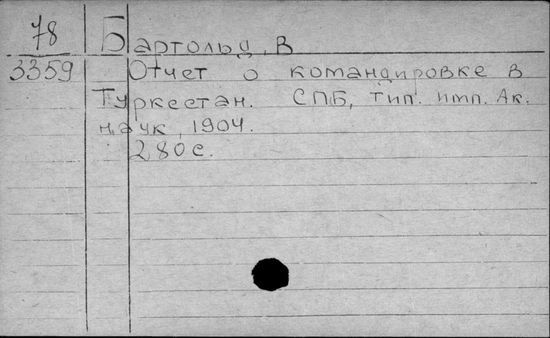 78 Бартольд, В
3359 Отчет о командировке в
Туркестан. СПБ, тип. имп. Ак.
наук, 1904.
280с.